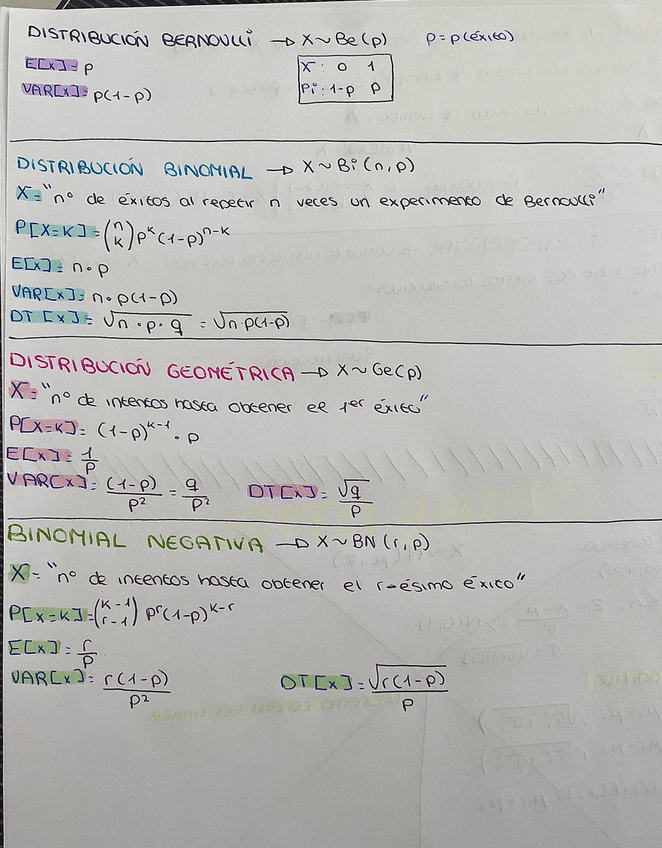 DISTRIBUCIÓN BERNOULLI → X ~ Be(p) p = p(éxito)
E[x] = p
X : 0 1
VAR[x] = p(1-p)
Pi : 1-p p
DISTRIBUCIÓN BINOMIAL → X ~ Bi(n,p)
X = "nº de éxitos al repetir n veces un experimento de Bernoulli"
P[X=K] = (n K) p^k (1-p)^n-k
E[x] = n·p
VAR[x] = n·p(1-p)
DT[x] = √n·p·q = √n·p(1-p)
DISTRIBUCIÓN GEOMÉTRICA → X ~ Ge(p)
X = "nº de intentos hasta obtener el 1er éxito"
P[X=K] = (1-p)^k-1 · p
E[x] = 1/p
VAR[x] = (1-p)/p² = q/p² DT[x] = √q/p
BINOMIAL NEGATIVA → X ~ BN(r,p)
X = "nº de intentos hasta obtener el r-ésimo éxito"
P[X=K] = (k-1 r-1) p^r (1-p)^k-r
E[x] = r/p
VAR[x] = r(1-p)/p² DT[x] = √r(1-p)/p